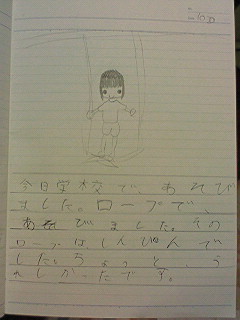 今日学校で、あそび
ました。ロープで、
あそびました。その
ロープはしんぴんで
した。ちょっと、う
れしかったです。